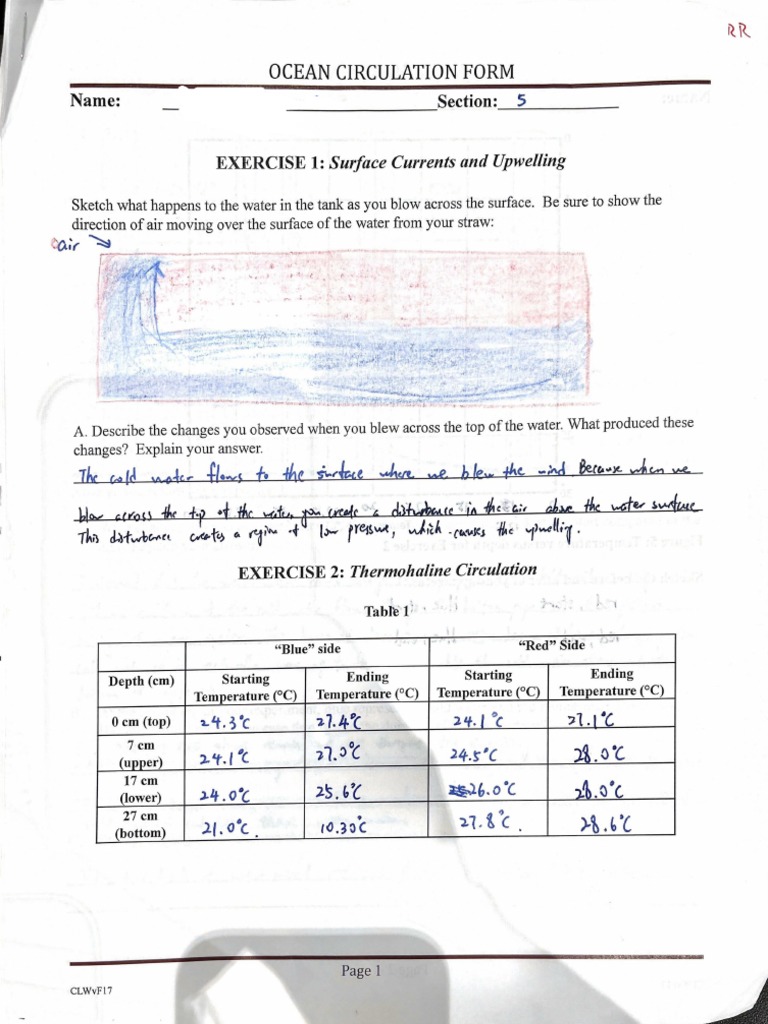 RR
OCEAN CIRCULATION FORM
Name: Section: 5
EXERCISE 1: Surface Currents and Upwelling
Sketch what happens to the water in the tank as you blow across the surface. Be sure to show the
direction of air moving over the surface of the water from your straw:
air
A. Describe the changes you observed when you blew across the top of the water. What produced these
changes? Explain your answer.
The cold water flows to the surface where we blew the wind. Because when we
blow across the top of the water, you create a disturbance in the air above the water surface
This disturbance creates a region of low pressure, which causes the upwelling.
EXERCISE 2: Thermohaline Circulation
Table 1
"Blue" side "Red" Side
Depth (cm) Starting Temperature (°C) Ending Temperature (°C) Starting Temperature (°C) Ending Temperature (°C)
0 cm (top) 24.3°C 27.4°C 24.1°C 27.1°C
7 cm (upper) 24.1°C 27.0°C 24.5°C 28.0°C
17 cm (lower) 24.0°C 25.6°C 26.0°C 28.0°C
27 cm (bottom) 21.0°C. 10.30°C 27.8°C. 28.6°C
Page 1
CLWvF17